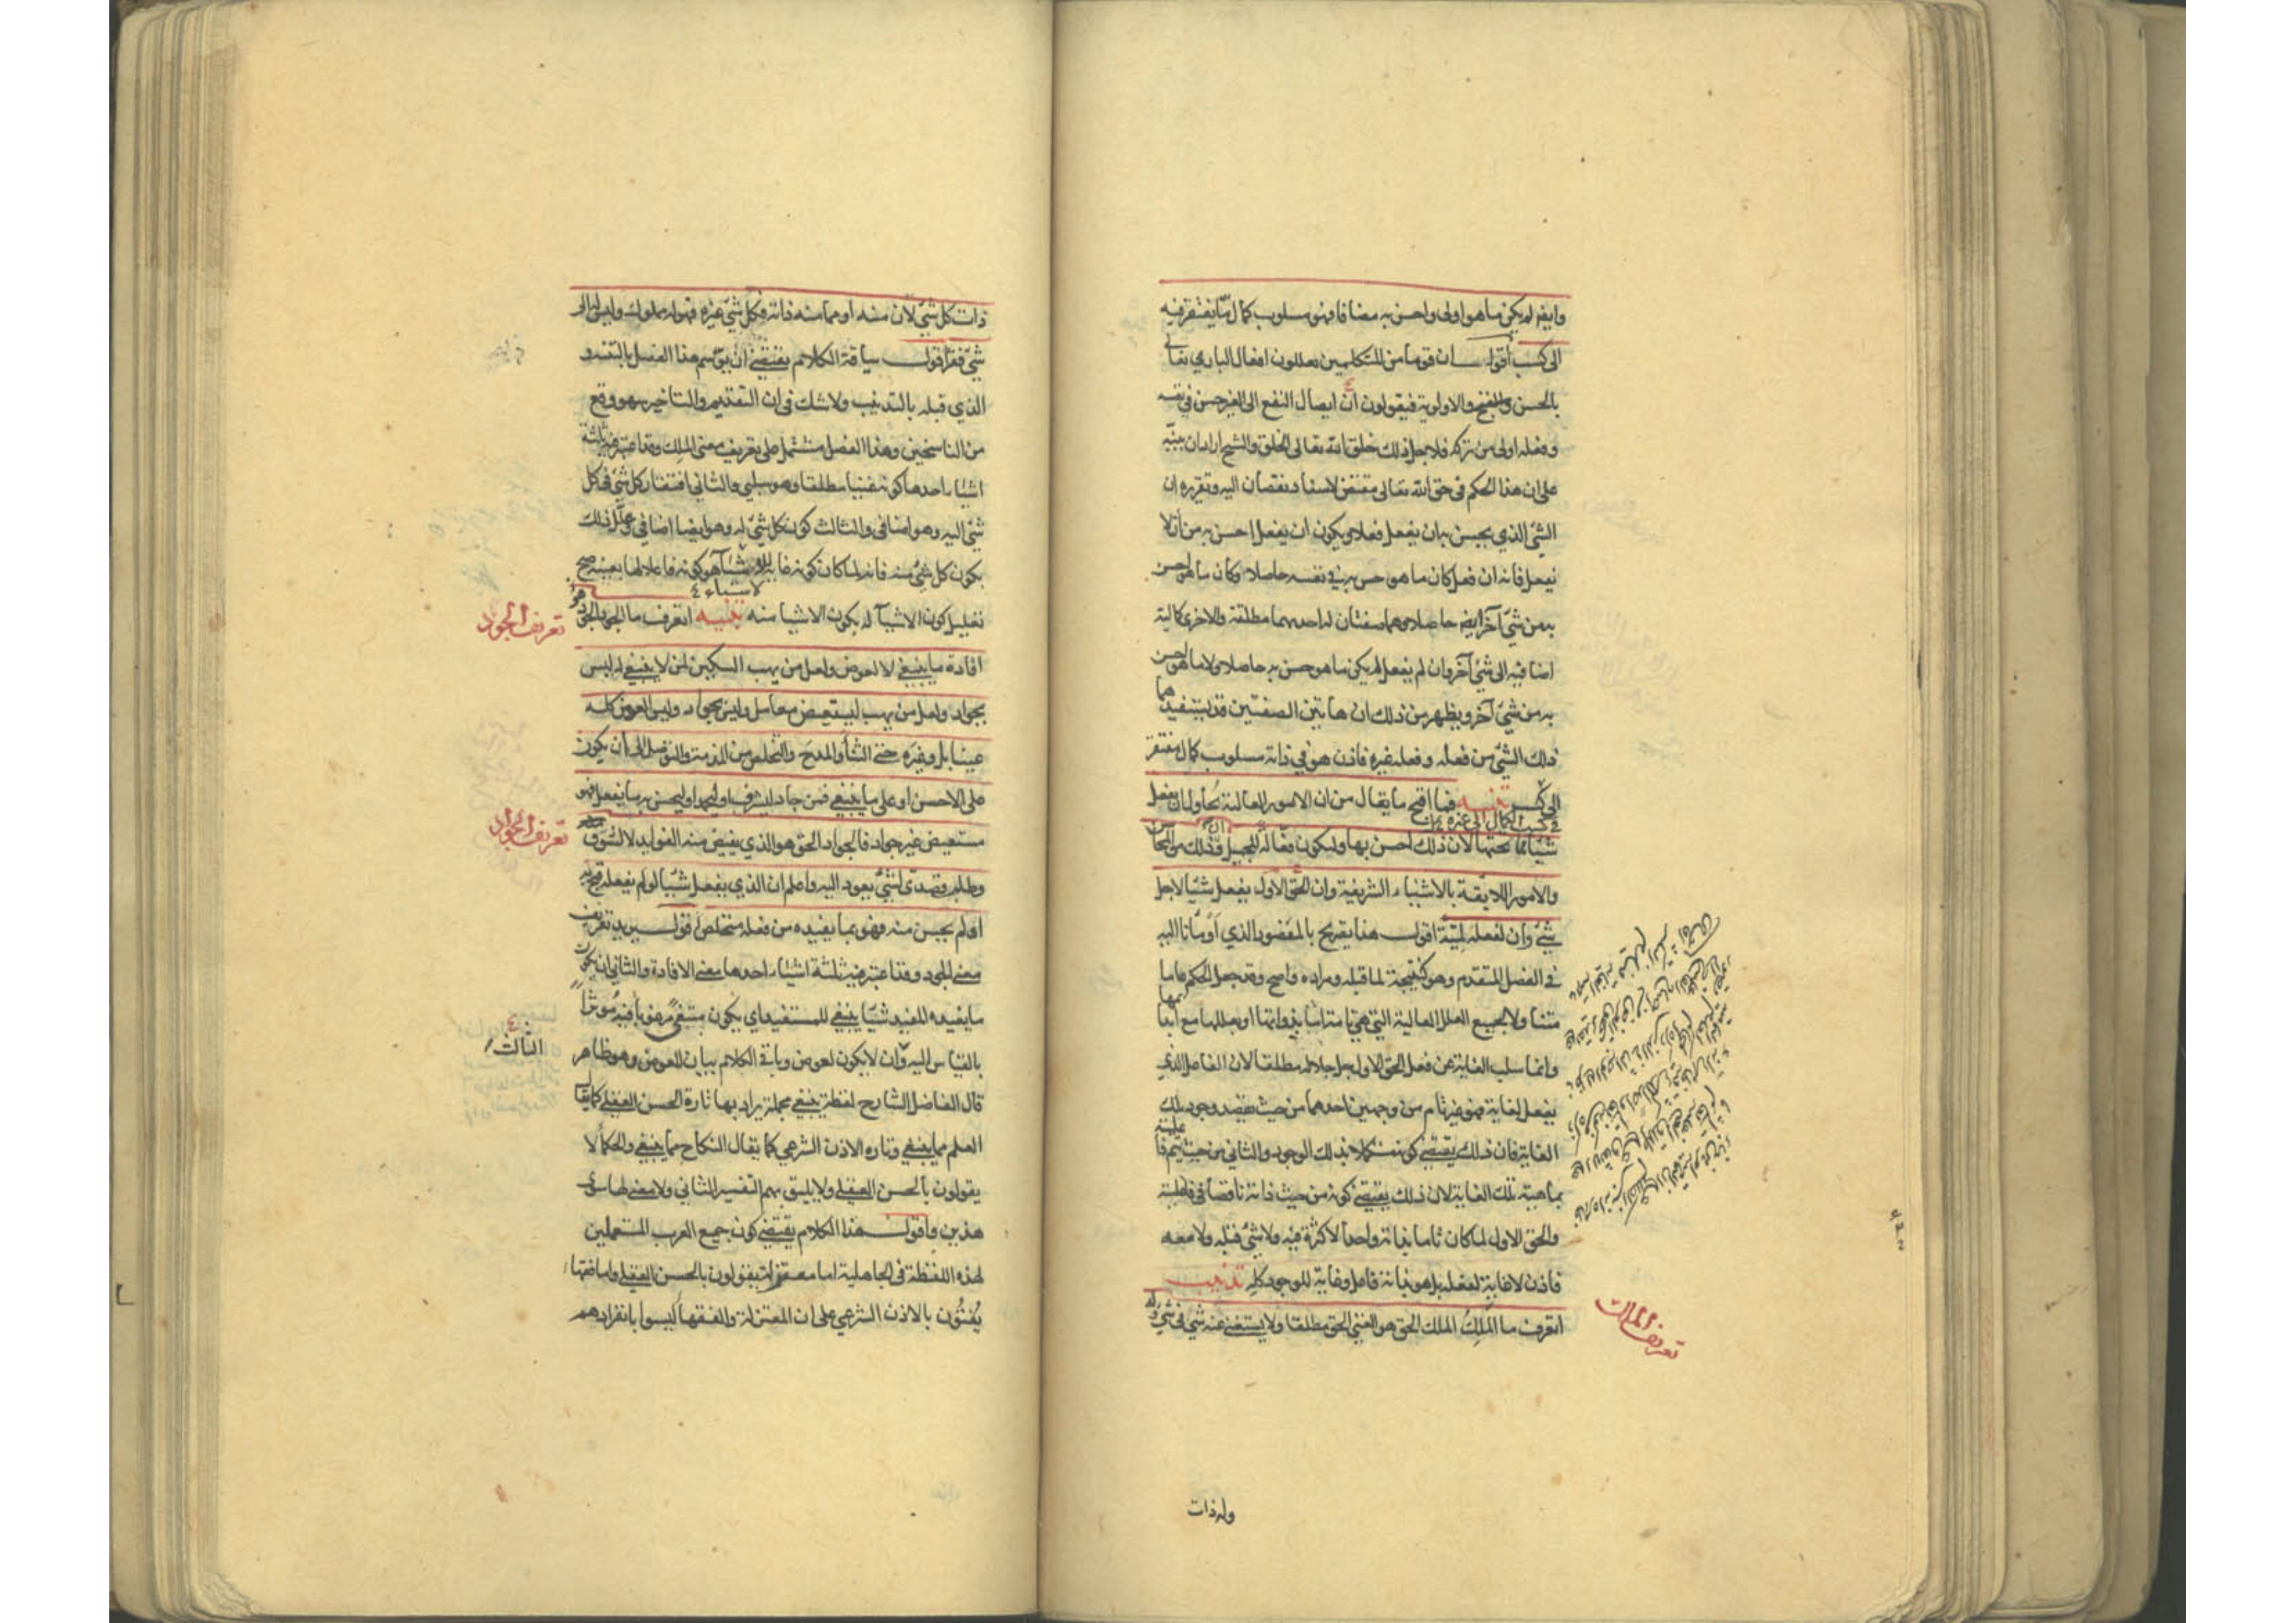 وايضا لم يكن ما هو اولى واحسن به مضافا فهو مسلوب كمال ما يفتقر فيه
الى كسب اقول ان قوما من المتكلمين يعللون افعال الباري تعالى
بالحسن والقبح والاولوية فيقولون ان ايصال النفع الى الغير حسن في نفسه
وفعله اولى من تركه فلاجل ذلك خلق الله تعالى الخلق والشيخ اراد ان ينبه
على ان هذا الحكم في حق الله تعالى مقتض لاسناد نقصان اليه وتقريره ان
الشئ الذي يحسن به ان يفعل فعلا ويكون ان يفعل احسن به من ان لا
يفعل فانه ان فعل كان ما هو حسن به في نفسه حاصلا وكان ما هو احسن
به من شئ آخر ايضا حاصلا وهما صفتان له احدهما مطلقة والاخرى كمالية
اضافية الى شئ آخر وان لم يفعل لم يكن ما هو حسن به حاصلا ولا ما هو احسن
به من شئ آخر ويظهر من ذلك ان هاتين الصفتين قد يستفيدهما
ذلك الشئ من فعله وفعله غيره فاذن هو في ذاته مسلوب كمال مفتقر
في كسب الكمال الى غيره
الى كسب تنبيه فما اقبح ما يقال من ان الامور العالية تحاول ان يفعل
شيئا لما تحتها لان ذلك احسن بها وليكون فعالة للجميل فان ذلك من المحاسن
والامور اللايقة بالاشياء الشريفة وان الحق الاول يفعل شيئا لاجل
شئ وان لفعله لمية اقول هذا تصريح بالمقصود الذي اومأنا اليه
في الفصل المتقدم وهو كنتيجة لما قبله ومراده واضح وقد جعل الحكم عاما
متناولا لجميع العلل العالية التي هي تامة اما بذواتها او بعللها مع ابداعها
وانما سلب الغاية عن فعل الحق الاول جل جلاله مطلقا لان الفاعل الذي
يفعل لغاية فهو غير تام من وجهين احدهما من حيث يقصد وجود تلك
الغاية فان ذلك يقتضي كونه مستكملا بذلك الوجود والثاني من حيث يتم فاعليته
بماهية تلك الغاية لان ذلك يقتضي كونه من حيث ذاته ناقصا في فاعليته
والحق الاول لما كان تاما بذاته واحدا لا كثرة فيه ولا شئ قبله ولا معه
فاذن لا غاية لفعله بل هو بذاته فاعل وغاية للوجود كله تذنيب
اتعرف ما الملك الملك الحق هو الغني الحق مطلقا ولا يستغني عنه شئ في شئ وله
تعريف الملك
وله ذات
ذات كل شئ لان منه او مما منه ذاته فكل شئ غيره فهو له مملوك وليس له الى
شئ فقر اقول سياقة الكلام يقتضي ان يوسم هذا الفصل بالتنبيه و
الذي قبله بالتذنيب ولا شك في ان التقديم والتاخير سهو وقع
من الناسخين وهذا الفصل مشتمل على تعريف معنى الملك وقد اعتبر فيه ثلثة
اشياء احدها كونه غنيا مطلقا وهو سلبي والثاني افتقار كل شئ في كل
شئ اليه وهو اضافي والثالث كون كل شئ له وهو ايضا اضافي وعلل ذلك
بكون كل شئ منه فانه لما كان كونه غاية للاشياء هو كونه فاعلا لها بعينه صح
لاشياء
تعليل كون الاشياء له بكون الاشيا منه تنبيه اتعرف ما الجود الجود هو
تعريف الجود
افادة ما ينبغي لا لعوض ولعل من يهب السكين لمن لا ينبغي له ليس
بجواد ولعل من يهب ليستعيض معامل وليس بجواد وليس العوض كله
عينا بل وغيره حتى الثنا والمدح والتخلص من المذمة والتوصل الى ان يكون
على الاحسن او على ما ينبغي فمن جاد ليشرف او ليحمد او ليحسن به ما يفعل فهو
مستعيض غير جواد فالجواد الحق هو الذي يفيض منه الفوايد لا لشوق
تعريف الجواد
وطلب قصدي لشئ يعود اليه واعلم ان الذي يفعل شيئا لو لم يفعله قبح به
او لم يحسن منه فهو بما يفيده من فعله متخلص اقول يريد تعريف
معنى الجود وقد اعتبر فيه ثلثة اشياء احدها معنى الافادة والثاني ان يكون
ما يفيده المفيد شيئا ينبغي للمستفيد اي يكون مبتغى مرغوبا فيه مؤثرا
الثالث
بالقياس اليه وان لا يكون لعوض وباقي الكلام بيان للعوض وهو ظاهر
قال الفاضل الشارح لفظة ينبغي مجملة يراد بها تارة الحسن العقلي كما يقال
العلم مما ينبغي وتارة الاذن الشرعي كما يقال النكاح مما ينبغي والحكما لا
يقولون بالحسن العقلي ولا يليق بهم التفسير الثاني ولا معنى لها سوى
هذين واقول هذا الكلام يقتضي كون جميع العرب المستعملين
لهذه اللفظة في الجاهلية اما معتزلة يقولون بالحسن العقلي واما فقها
يفتون بالاذن الشرعي على ان المعتزلة والفقها ليسوا بانفرادهم